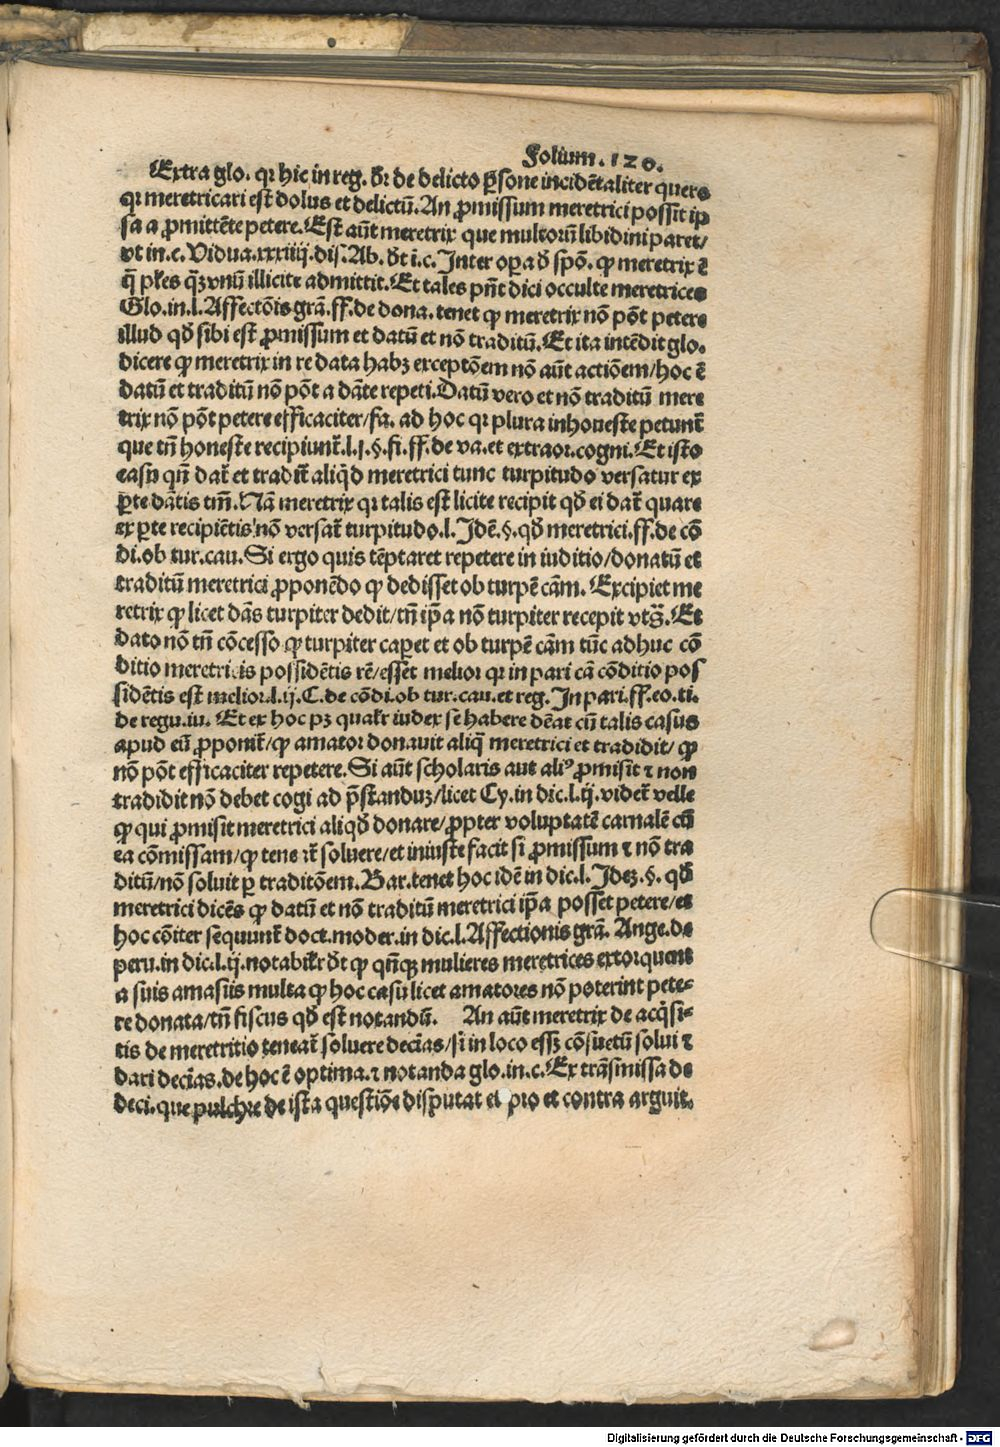 Folium.120.
Extra glo. qꝛ hic in reg. dꝛ de delicto ꝑsone incidẽtaliter quero
qꝛ meretricari est dolus et delictũ. An ꝓmissum meretrici possit ip
sa a ꝓmittẽte petere. Est aũt meretrix que multorũ libidini paret/
vt in.c. Vidua.xxxiiij.dis. Ab. dt i.c. Inter oꝑa đ spõ. ꝙ meretrix ẽ
q̃ pl̃es qꝫ vnũ illicite admittit. Et tales pn̄t dici occulte meretrices
Glo.in.l. Affectõis grã.ff.de dona. tenet ꝙ meretrix nõ põt petere
illud qđ sibi est ꝓmissum et datũ et nõ traditũ. Et ita intẽdit glo.
dicere ꝙ meretrix in re data habꝫ exceptõem nõ aũt actiõem/hoc ẽ
datũ et traditũ nõ põt a dãte repeti. Datũ vero et nõ traditũ mere
trix nõ põt petere efficaciter/fa. ad hoc qꝛ plura inhoneste petunt̃
que tñ honeste recipiunt̃.l.j.§.fi.ff.de va.et extraoꝛ.cogni. Et isto
casu qñ dat̃ et tradit̃ aliq̃d meretrici tunc turpitudo versatur ex
ꝑte dãtis tm̃. Nã meretrix qꝛ talis est licite recipit qđ ei dat̃ quare
ex ꝑte recipiẽtis nõ versat̃ turpitudo.l. Idẽ.§.qđ meretrici.ff.de cõ
di.ob tur.cau. Si ergo quis tẽptaret repetere in iuditio/donatũ et
traditũ meretrici ꝓponẽdo ꝙ dedisset ob turpẽ cãm. Excipiet me
retrix ꝙ licet dãs turpiter dedit/tñ ip̃a nõ turpiter recepit vts̃. Et
dato nõ tñ cõcesso ꝙ turpiter caperet et ob turpẽ cãm tũc adhuc cõ
ditio meretricis possidẽtis rẽ/esset melioꝛ qꝛ in pari cã cõditio pos
sidẽtis est melioꝛ.l.ij.C.de cõdi.ob tur.cau.et reg. In pari.ff.eo.ti.
de regu.iu. Et ex hoc pꝫ qualr̃ iudex se habere dẽat cũ talis casus
apud eũ ꝓponit̃/ꝙ amatoꝛ donauit aliq̃ meretrici et tradidit/ ꝙ
nõ põt efficaciter repetere. Si aũt scholaris aut aliꝰ ꝓmisit ⁊ non
tradidit nõ debet cogi ad p̃standuꝫ/licet Cy.in dic.l.ij. videt̃ velle
ꝙ qui ꝓmisit meretrici aliqđ donare/ꝓpter voluptatẽ carnalẽ cũ
ea cõmissam/ꝙ teneat̃ soluere/et iniuste facit si ꝓmissum ⁊ nõ tra
ditũ/nõ soluit ꝑ traditõem. Bar.tenet hoc idẽ in dic.l. Ideꝫ.§. qđ
meretrici dicẽs ꝙ datũ et nõ traditũ meretrici ip̃a posset petere/et
hoc cõiter sequunt̃ doct.moder.in dic.l. Affectionis grã. Ange.de
peru.in dic.l.ij.notabilr̃ dt ꝙ qñqꝫ mulieres meretrices extorquent
a suis amasiis multa ꝙ hoc casu licet amatores nõ poterint pete⸗
re donata/tñ fiscus qđ est notandũ. An aũt meretrix de acq̃si⸗
tis de meretritio teneat̃ soluere decĩas/si in loco esꝫ cõsuetũ solui ⁊
dari decĩas.de hoc ẽ optima.⁊ notanda glo.in.c. Ex trãsmissa de
deci.que pulchre de ista questiõe disputat et pro et contra arguit.
Digitalisierung gefördert durch die Deutsche Forschungsgemeinschaft - DFG